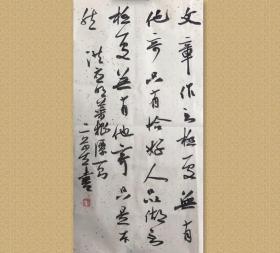 文章作到極處無有
他奇只有恰好人品做到
極處無有他奇只是本
然 洪应明菜根谭句
书